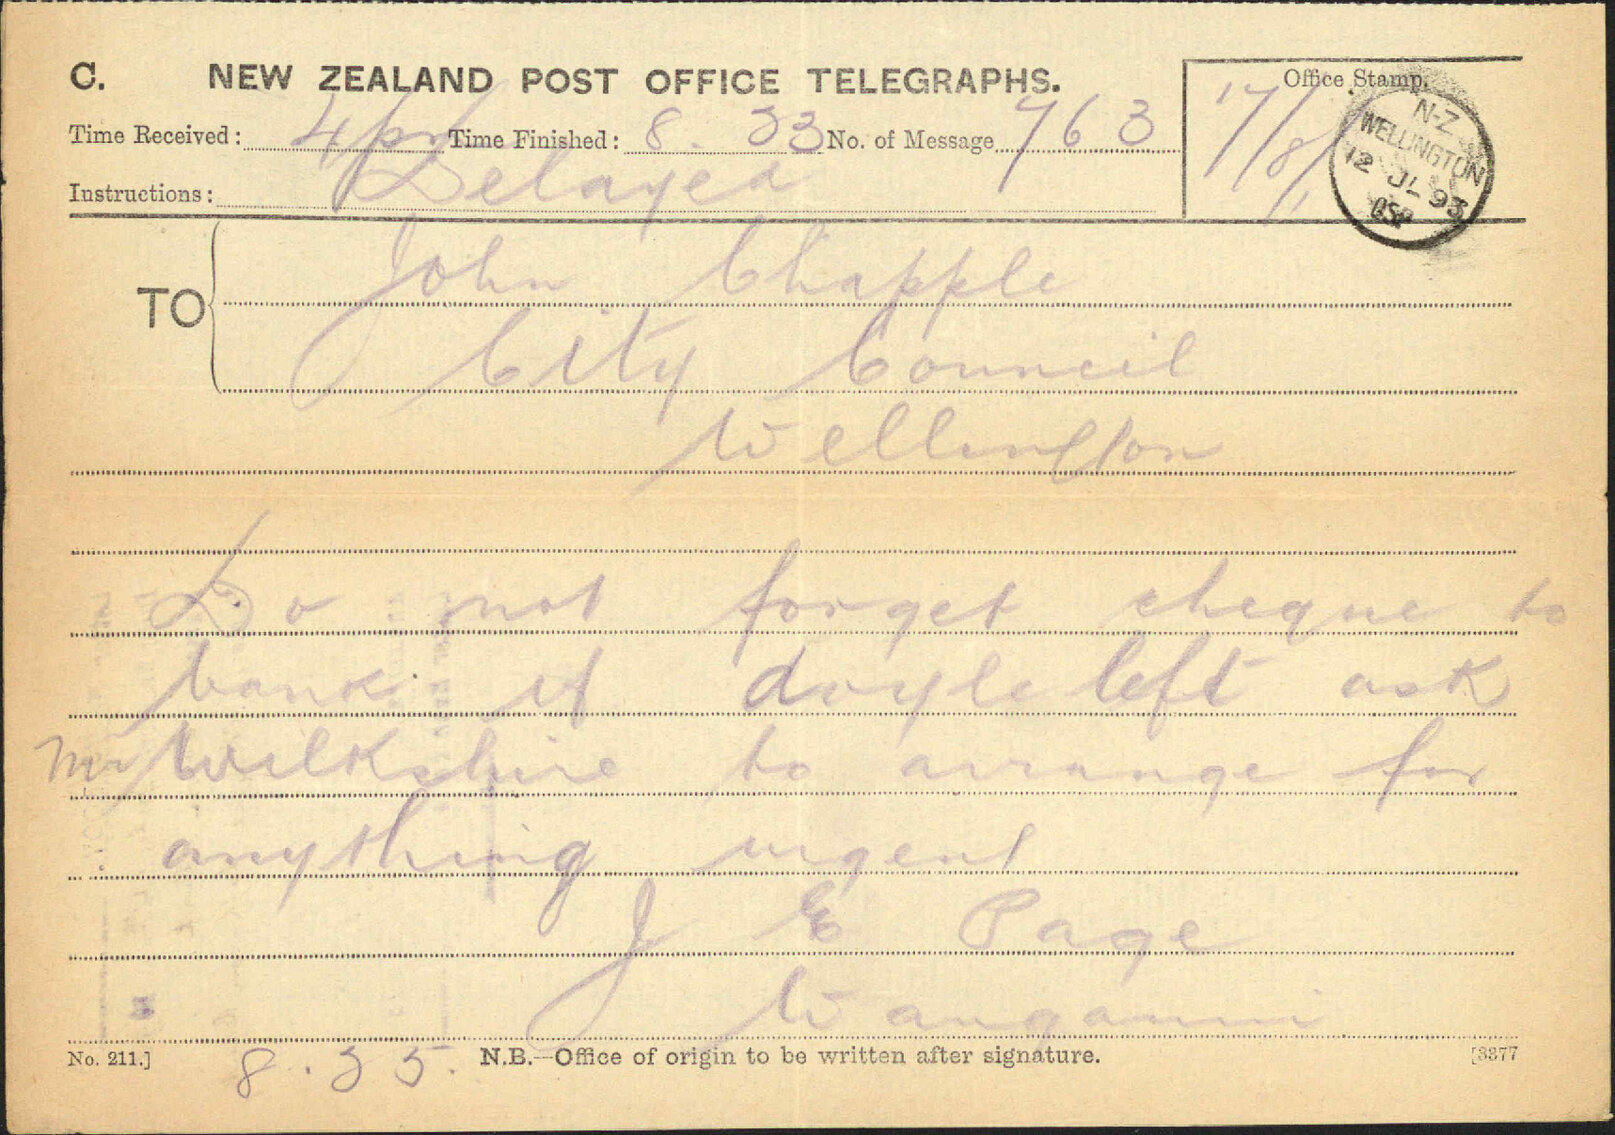 C. NEW ZEALAND POST OFFICE TELEGRAPHS.
Office Stamp.
Time Received: 4 pm Time Finished: 8.33 No. of Message 763
17/8/
N-Z
WELLINGTON
12 JL 93
Instructions: Delayed
TO John Chapple
City Council
Wellington
Do not forget cheque to
bank if doyle left ask
Mr Wilkshire to arrange for
anything urgent
J E Page
Wanganui
No. 211.] 8.35. N.B.—Office of origin to be written after signature. [3377